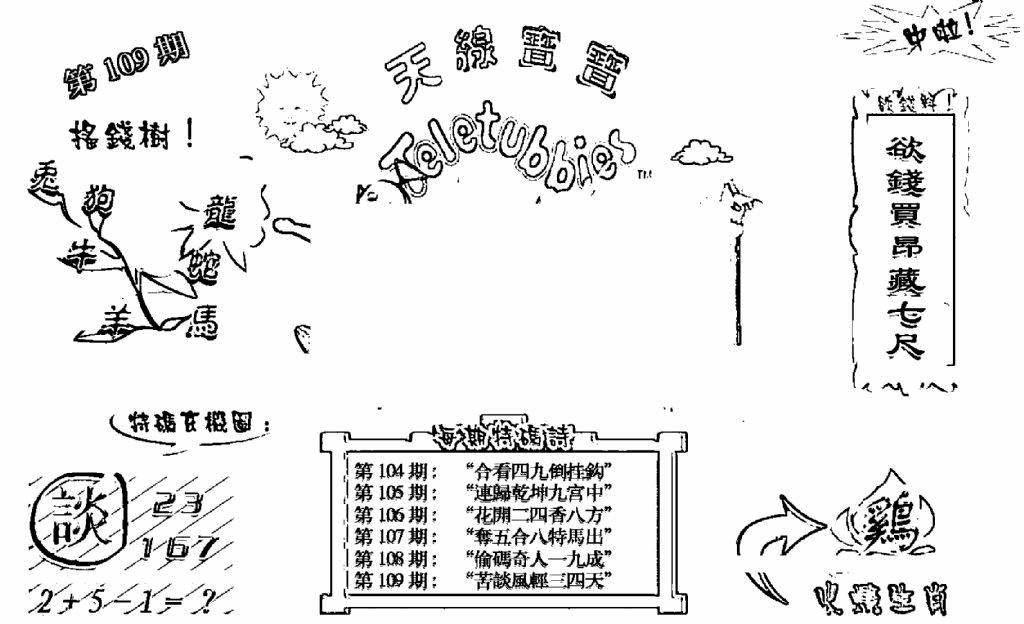 第109期
天線寶寶
Teletubbies
TM
中啦!
搖錢樹!
兎
狗
牛
羊
龍
蛇
馬
欲錢買昂藏七尺
特碼玄機圖:
談
23
167
2+5-1=?
每期特碼詩
第104期: "合看四九倒挂鈎"
第105期: "連歸乾坤九宫中"
第106期: "花開二四香八方"
第107期: "奪五合八特馬出"
第108期: "偷碼奇人一九成"
第109期: "苦談風輕三四天"
鷄
火燒生肖